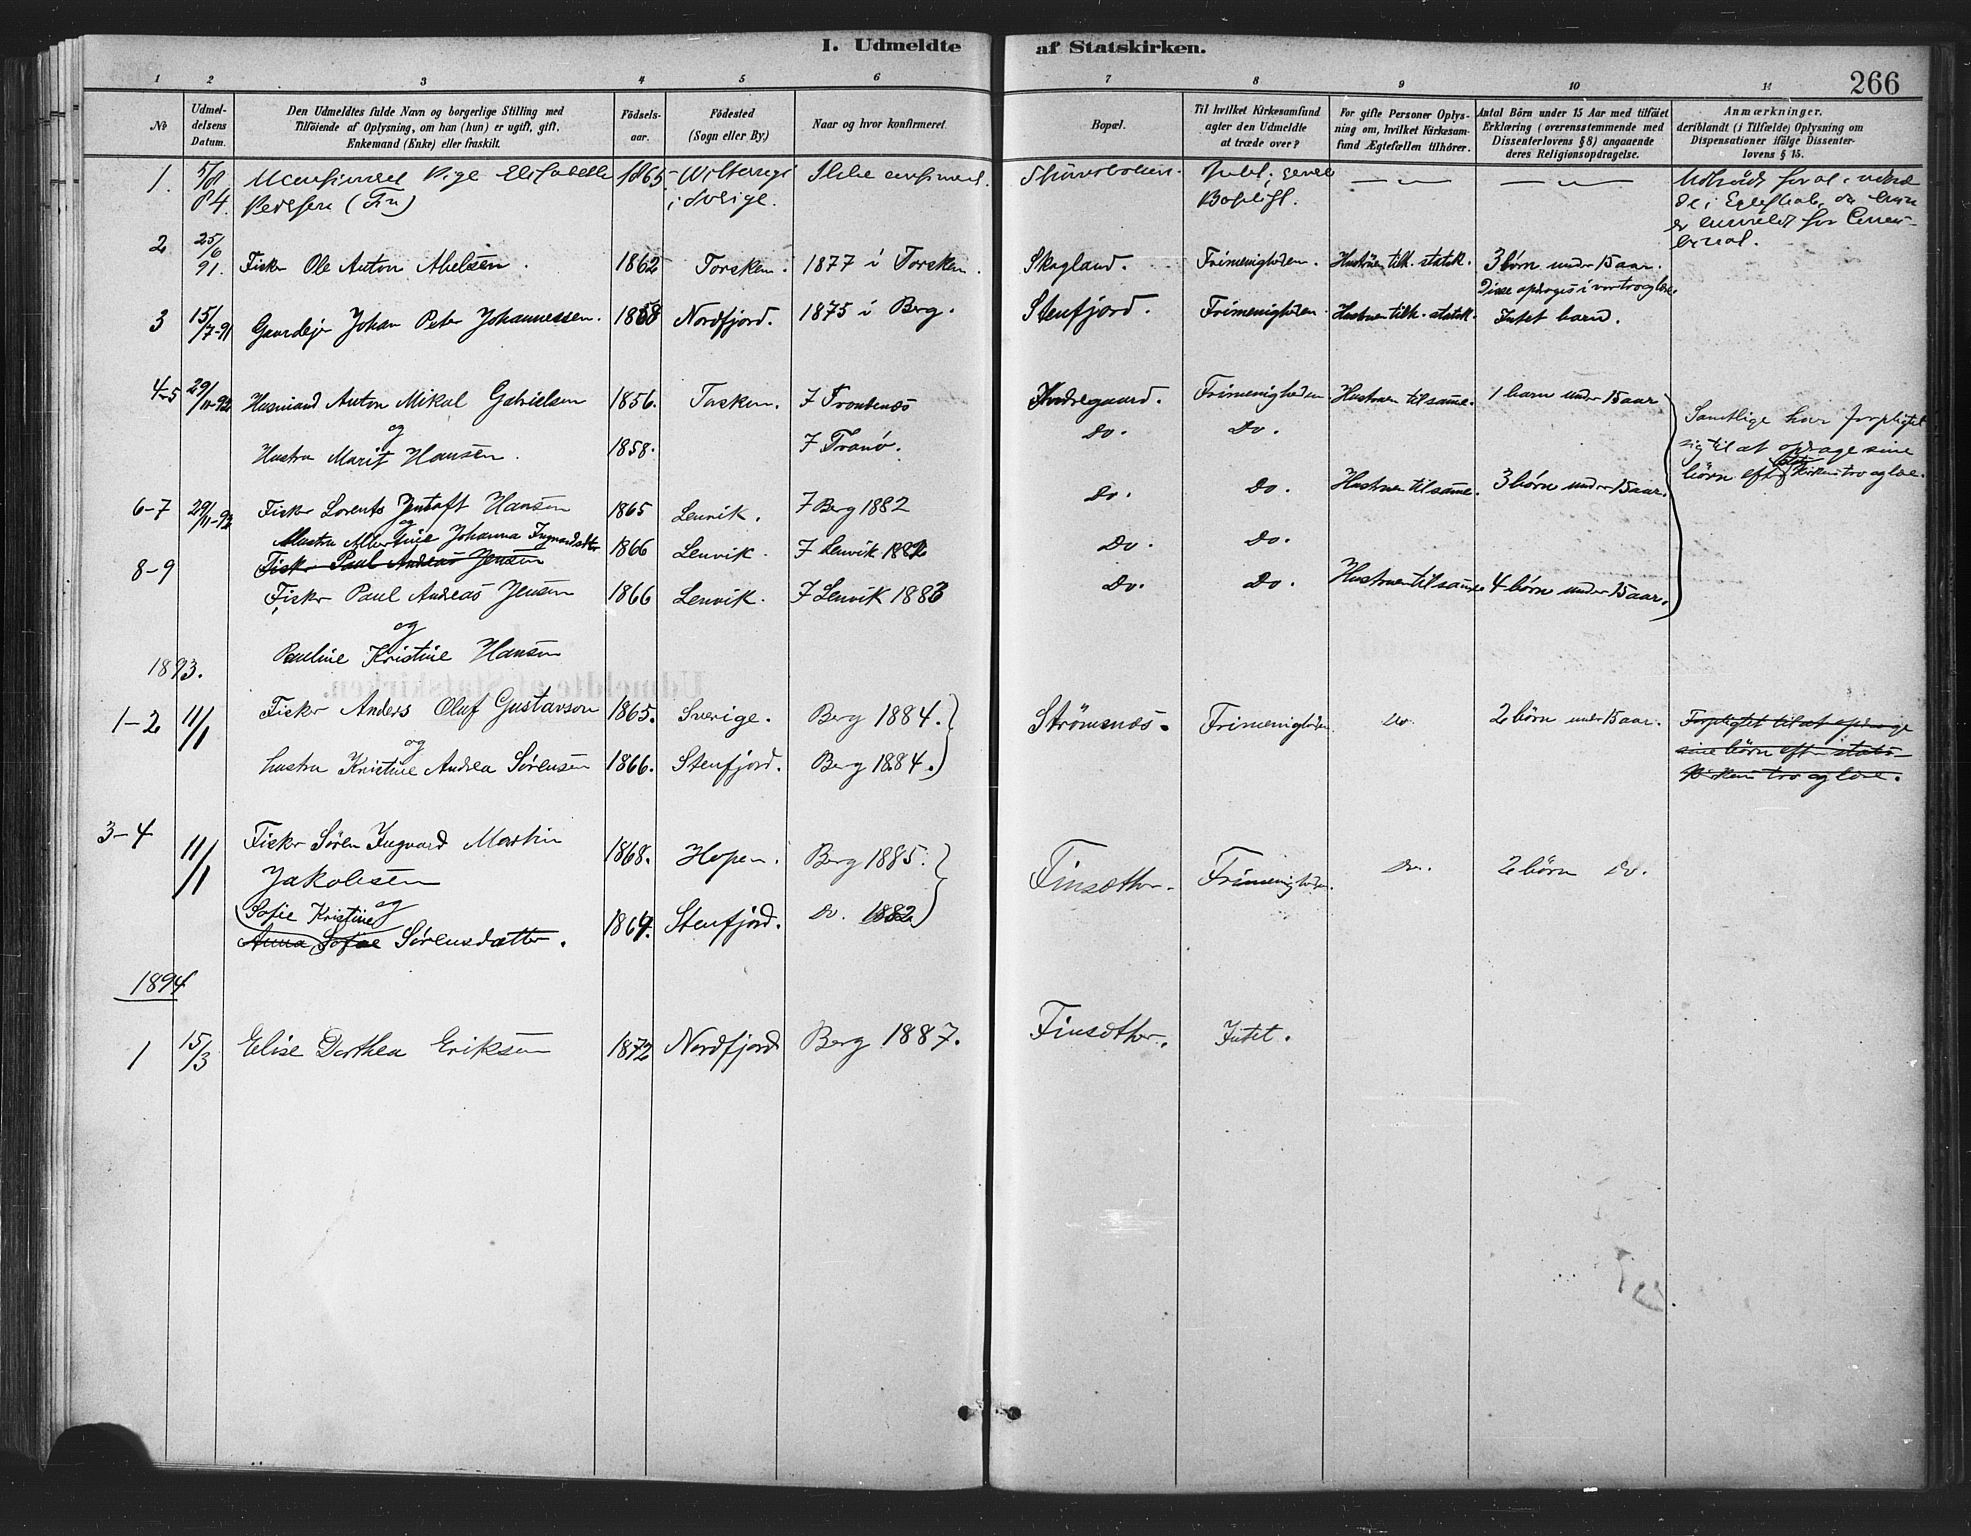 I. Udmeldte af Statskirken.
266
1 2 3 4 5 6 7 8 9 10 11
No
Udmeldelsens Datum.
Den Udmeldtes fulde Navn og borgerlige Stilling med
Tilføiende af Oplysning, om han (hun) er ugift, gift,
Enkemand (Enke) eller fraskilt.
Fødselsaar.
Fødested
(Sogn eller By)
Naar og hvor konfirmeret.
Bopæl.
Til hvilket Kirkesamfund
agter den Udmeldte
at træde over?
For gifte Personer Oplys-
ning om, hvilket Kirkesam-
fund Ægtefællen tilhører.
Antal Børn under 15 Aar med tilføiet
Erklæring (overensstemmende med
Dissenterlovens § 8) angaaende
deres Religionsopdragelse.
Anmærkninger.
deriblandt (i Tilfælde) Oplysning om
Dispensationer ifølge Dissenter-
lovens § 15.
1. 5/8 84. Pige Elisabeth 1865
Pedersen (Fin) i Sverige.
2 25/6 91. Fisker Ole Anton Abelsen. 1862 Torsken. 1877 i Torsken. Skogland. Frimenigheden. Hustruen tilh. statsk. 3 børn under 15 aar.
Disse opdrages i vor tro og lære.
3 15/7-91 Gaardejer Johan Peter Johannessen. 1858 Nordfjord. 1875 i Berg. Stenfjord. Frimenigheden. Hustruen tilh. statsk. Intet barn.
4-5 29/11-92 Husmand Anton Mikal Gabrielsen 1856. Torsken. I Trondenæs Indregaard. Frimenigheden Hustruen til samme. 1 barn under 15 aar
og
Hustru Marit Hansen. 1858. I Tranø. Do. Do.
Samtlige har forpligtet
sig til at opdrage sine
børn efter statskirkens tro og lære.
6-7 29/11-92 Fisker Lorents Jentoft Hansen 1865 Lenvik. I Berg 1882 Do. Do. Hustruen til samme. 3 børn under 15 aar.
og
Hustru Albertine Johanna Ingvardsdatter 1866 Lenvik. I Lenvik 1882 Do. Do.
8-9 Fisker Paul Andreas Jensen
Fisker Paul Andreas Jensen 1866 Lenvik. I Lenvik 1883 Do. Do. Hustruen til samme 4 børn under 15 aar.
og
Pauline Kristine Hansen
1893.
1-2 11/1 Fisker Anders Oluf Gustavson 1865. Sverige. Berg 1884. Strømsnæs. Frimenigheden Do. 2 børn under 15 aar. Forpligtet til at opdrage
sine børn efter stats-
kirkens tro og lære.
og
hustru Kristine Andrea Sørensen 1866. Stenfjord. Berg 1884.
3-4 11/1 Fisker Søren Ingvard Martin
Jakobsen 1868. Hopen. Berg 1885. Finsæther. Frimenigheden. Do. 2 børn Do.
og
Sofie Kristine
Anna Sofie Sørensdatter. 1867. Stenfjord. Do. 1882
1894
1 15/3 Elise Dorthea Eriksen 1872 Nordfjord Berg 1887. Finsæther. Intet.